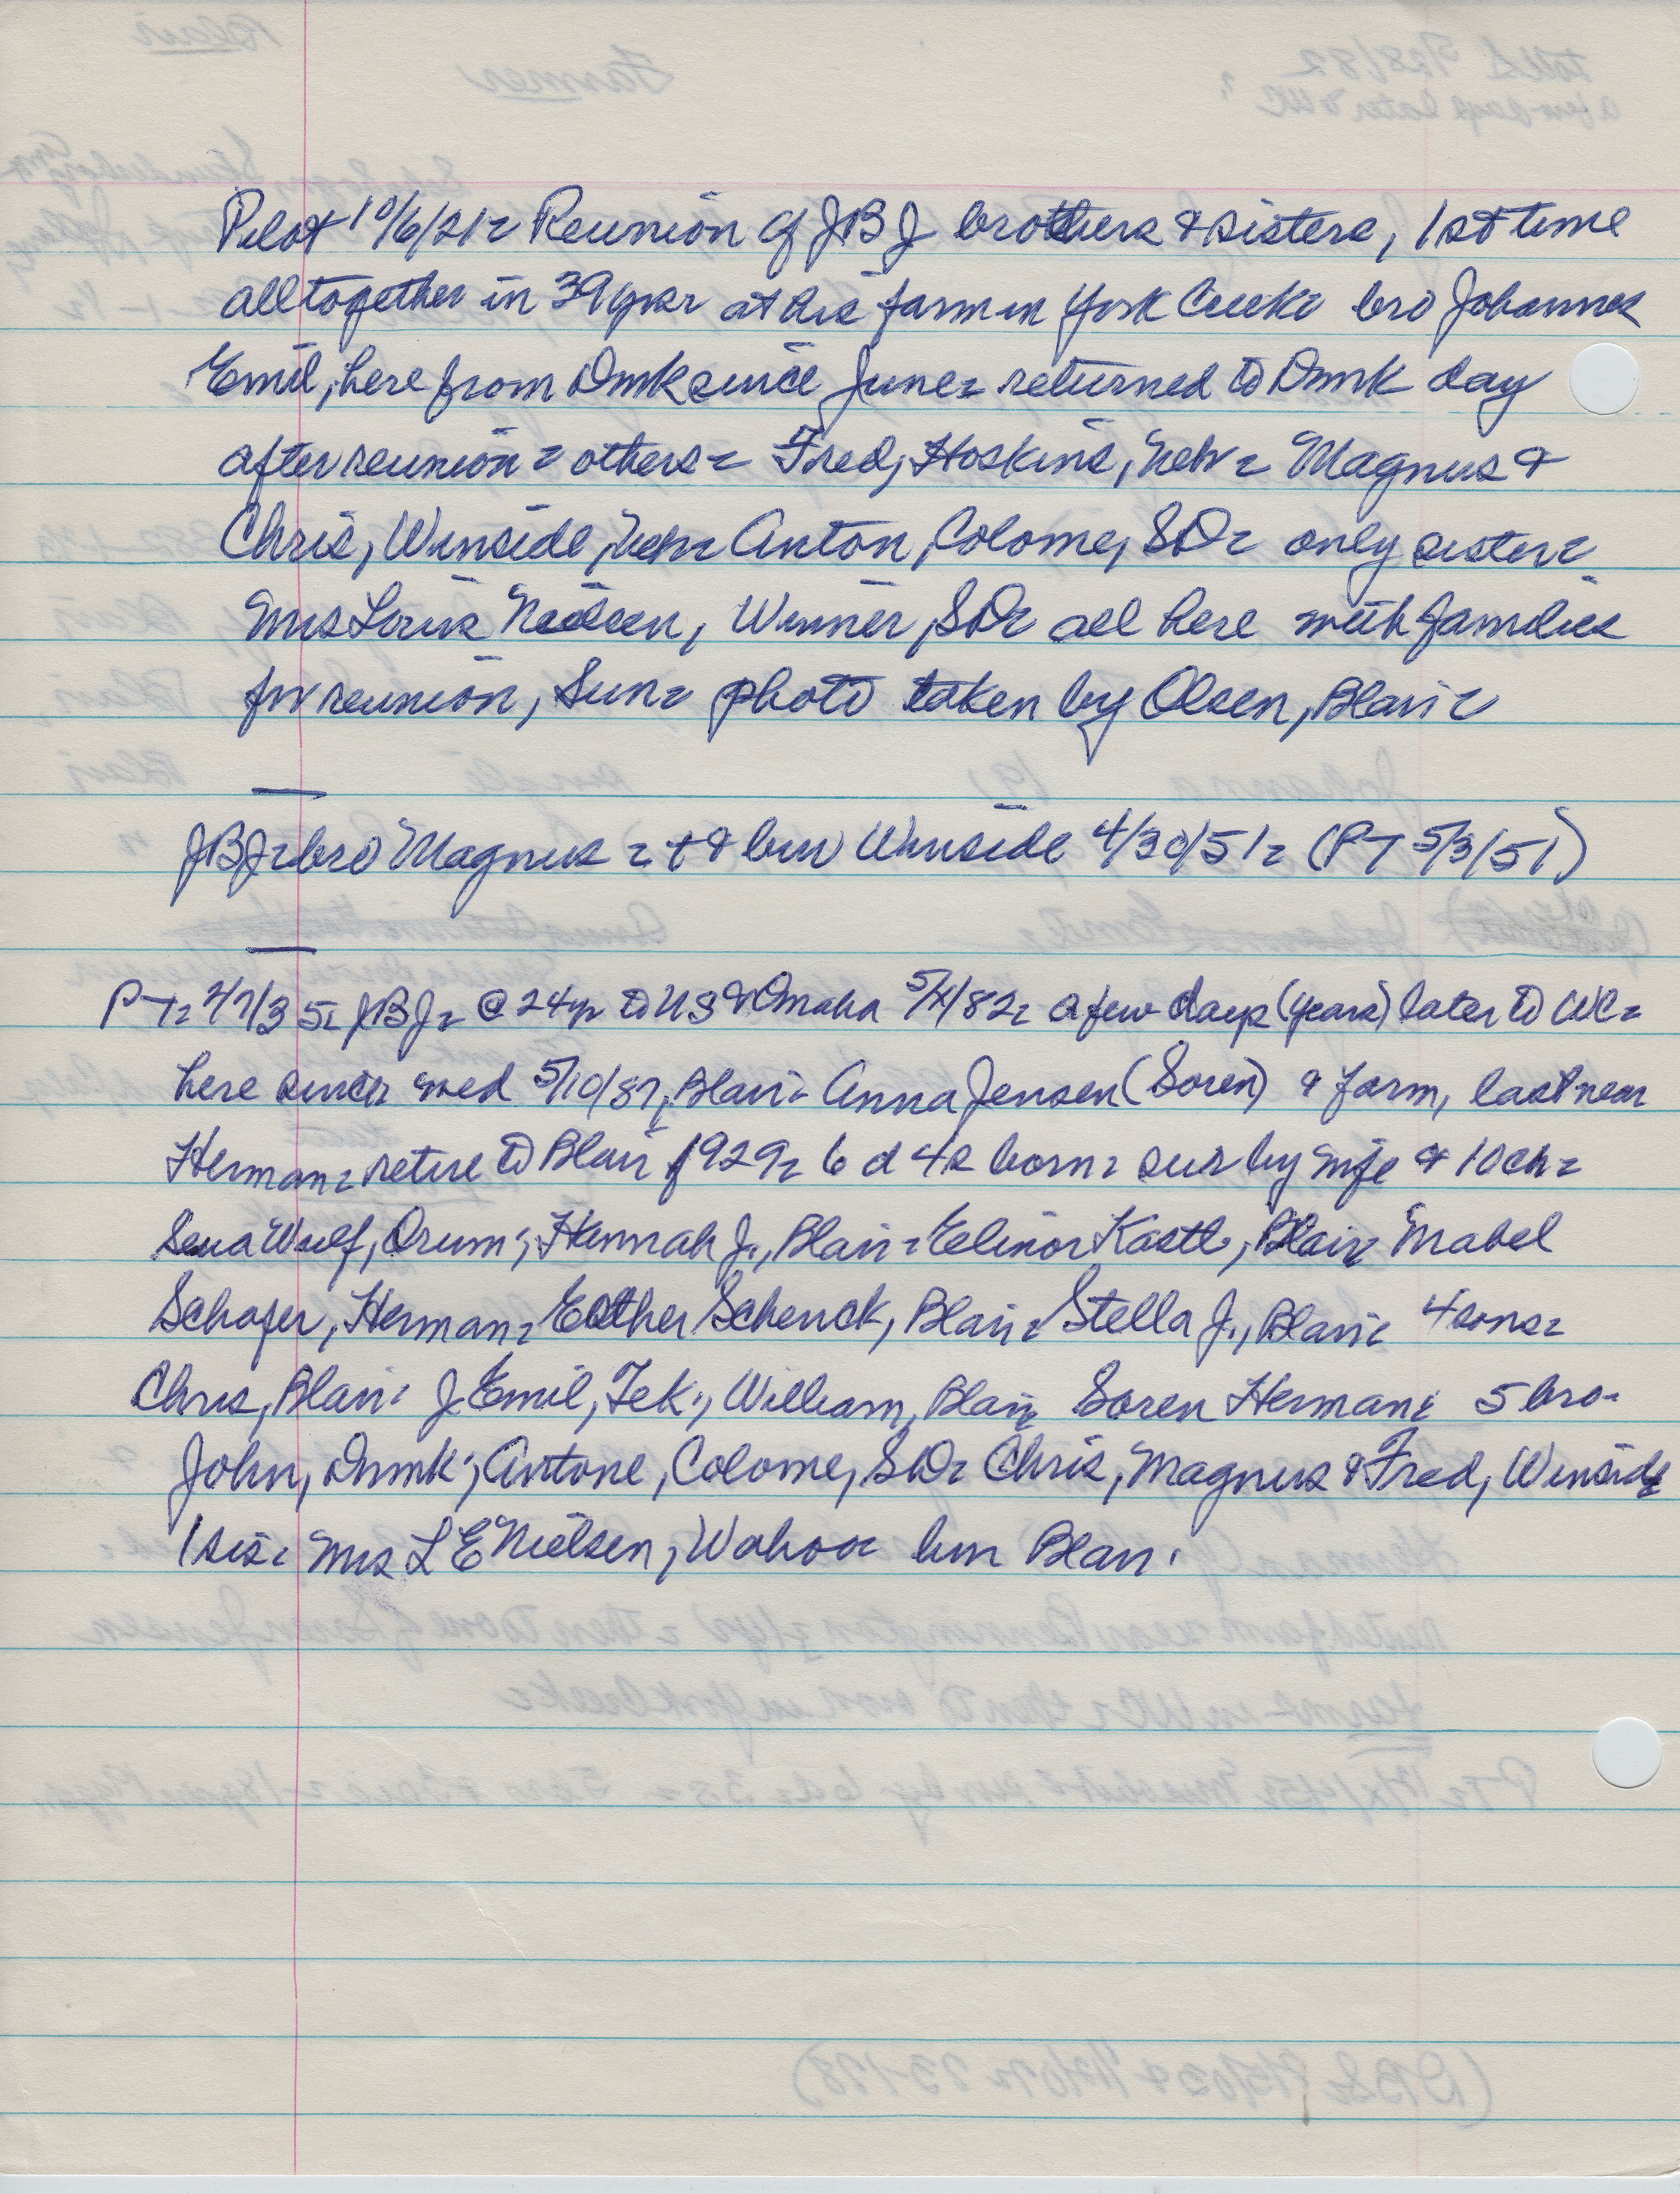 Pilot 10/6/21 = Reunion of JBJ brothers & sisters, 1st time
all together in 39 yrs = at his farm in York Creek = bro Johannes
Emil, here from Dnmk since June = returned to Dnmk day
after reunion = others = Fred, Hoskins, Neb = Magnus &
Chris, Winside, Neb = Anton, Colome, SD = only sister =
Mrs Louis Nielsen, Winner, SD = all here with families
for reunion, Sun = photo taken by Olsen, Blair =
JBJ = bro Magnus = + & bur Winside 4/30/51 = (PT 5/3/51)
PT = 2/7/35 = JBJ = @ 24 yr to US & Omaha 5/X/82 = a few days (years) later to WC =
here since = wed 5/10/87, Blair = Anna Jensen (Soren) & farm, last near
Herman = retire to Blair 1929 = 6 d 4s born = sur by wife & 10 ch =
Sena Wulf, Orum; Hannah J., Blair = Elinor Kastl, Blair = Mabel
Schafer, Herman = Esther Schenck, Blair = Stella J., Blair = 4 sons =
Chris, Blair = J Emil, Tek; William, Blair = Soren Herman = 5 bro =
John, Dnmk; Antone, Colome, SD = Chris, Magnus & Fred, Winside
1 sis = Mrs L E Nielsen, Wahoo = bur Blair.